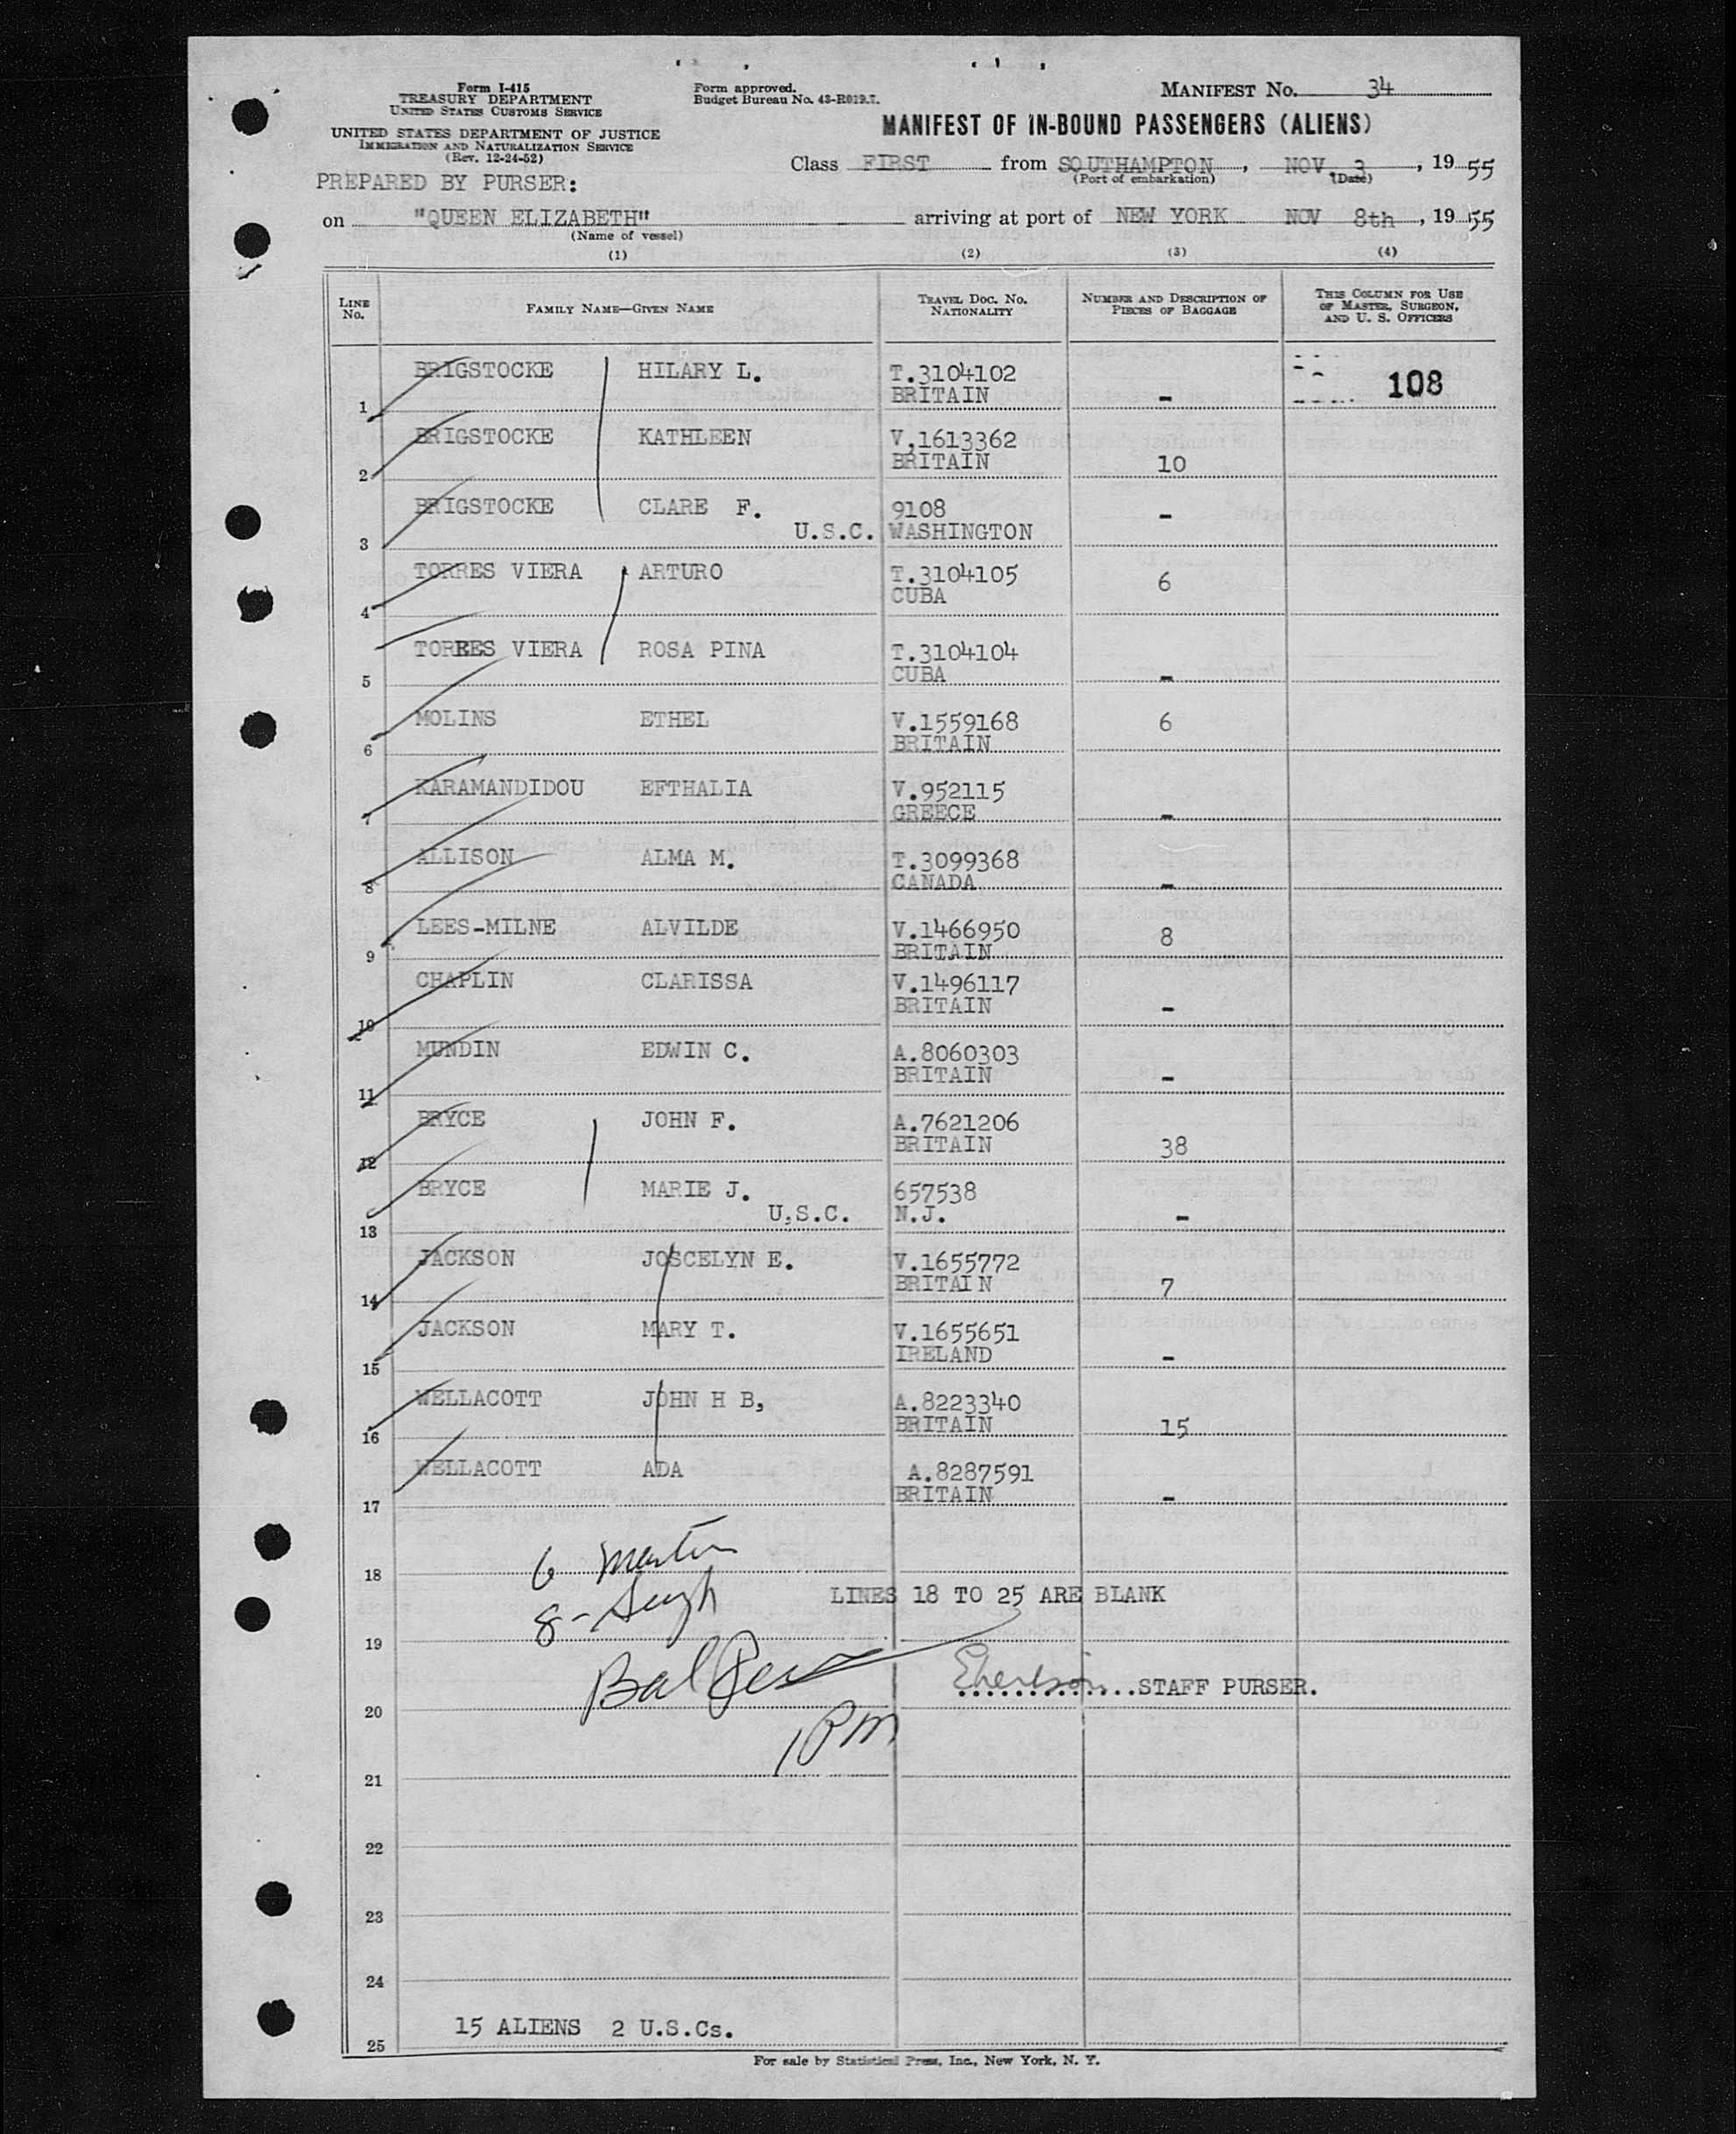 Form I-415
TREASURY DEPARTMENT
UNITED STATES CUSTOMS SERVICE
UNITED STATES DEPARTMENT OF JUSTICE
IMMIGRATION AND NATURALIZATION SERVICE
(Rev. 12-24-52)
Form approved.
Budget Bureau No. 43-R019.7.
MANIFEST NO. 34
MANIFEST OF IN-BOUND PASSENGERS (ALIENS)
Class FIRST from SOUTHAMPTON, NOV. 3, 1955
(Port of embarkation) (Date)
PREPARED BY PURSER:
on "QUEEN ELIZABETH" arriving at port of NEW YORK NOV 8th, 1955
(Name of vessel)
(1) (2) (3) (4)
LINE No. FAMILY NAME—GIVEN NAME TRAVEL DOC. NO. NATIONALITY NUMBER AND DESCRIPTION OF PIECES OF BAGGAGE THIS COLUMN FOR USE OF MASTER, SURGEON, AND U. S. OFFICERS
1 BRIGSTOCKE HILARY L. T.3104102 BRITAIN - 108
2 BRIGSTOCKE KATHLEEN V,1613362 BRITAIN 10
3 BRIGSTOCKE CLARE F. U.S.C. 9108 WASHINGTON -
4 TORRES VIERA ARTURO T.3104105 CUBA 6
5 TORRES VIERA ROSA PINA T.3104104 CUBA -
6 MOLINS ETHEL V.1559168 BRITAIN 6
7 KARAMANDIDOU EFTHALIA V.952115 GREECE -
8 ALLISON ALMA M. T.3099368 CANADA -
9 LEES-MILNE ALVILDE V.1466950 BRITAIN 8
10 CHAPLIN CLARISSA V.1496117 BRITAIN -
11 MUNDIN EDWIN C. A.8060303 BRITAIN -
12 BRYCE JOHN F. A.7621206 BRITAIN 38
13 BRYCE MARIE J. U.S.C. 657538 N.J. -
14 JACKSON JOSCELYN E. V.1655772 BRITAIN 7
15 JACKSON MARY T. V.1655651 IRELAND -
16 WELLACOTT JOHN H B, A.8223340 BRITAIN 15
17 WELLACOTT ADA A.8287591 BRITAIN -
18 6 Martin
LINES 18 TO 25 ARE BLANK
19 8-
20 Bal
STAFF PURSER.
1PM
21
22
23
24
25 15 ALIENS 2 U.S.Cs.
For sale by Statistical Press, Inc., New York, N. Y.